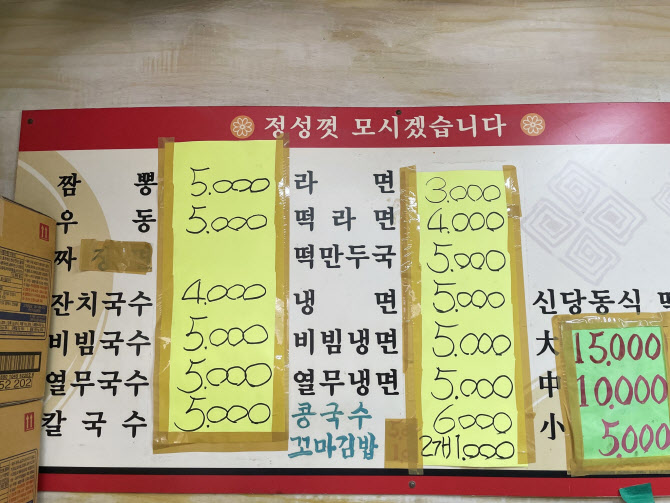 정성껏 모시겠습니다
짬뽕 5.000
우동 5.000
짜
잔치국수 4.000
비빔국수 5.000
열무국수 5.000
칼국수 5.000
라면 3.000
떡라면 4.000
떡만두국 5.000
냉면 5.000
비빔냉면 5.000
열무냉면 5.000
콩국수 6.000
꼬마김밥 2개 1.000
신당동식
大 15.000
中 10.000
小 5.000
52 202